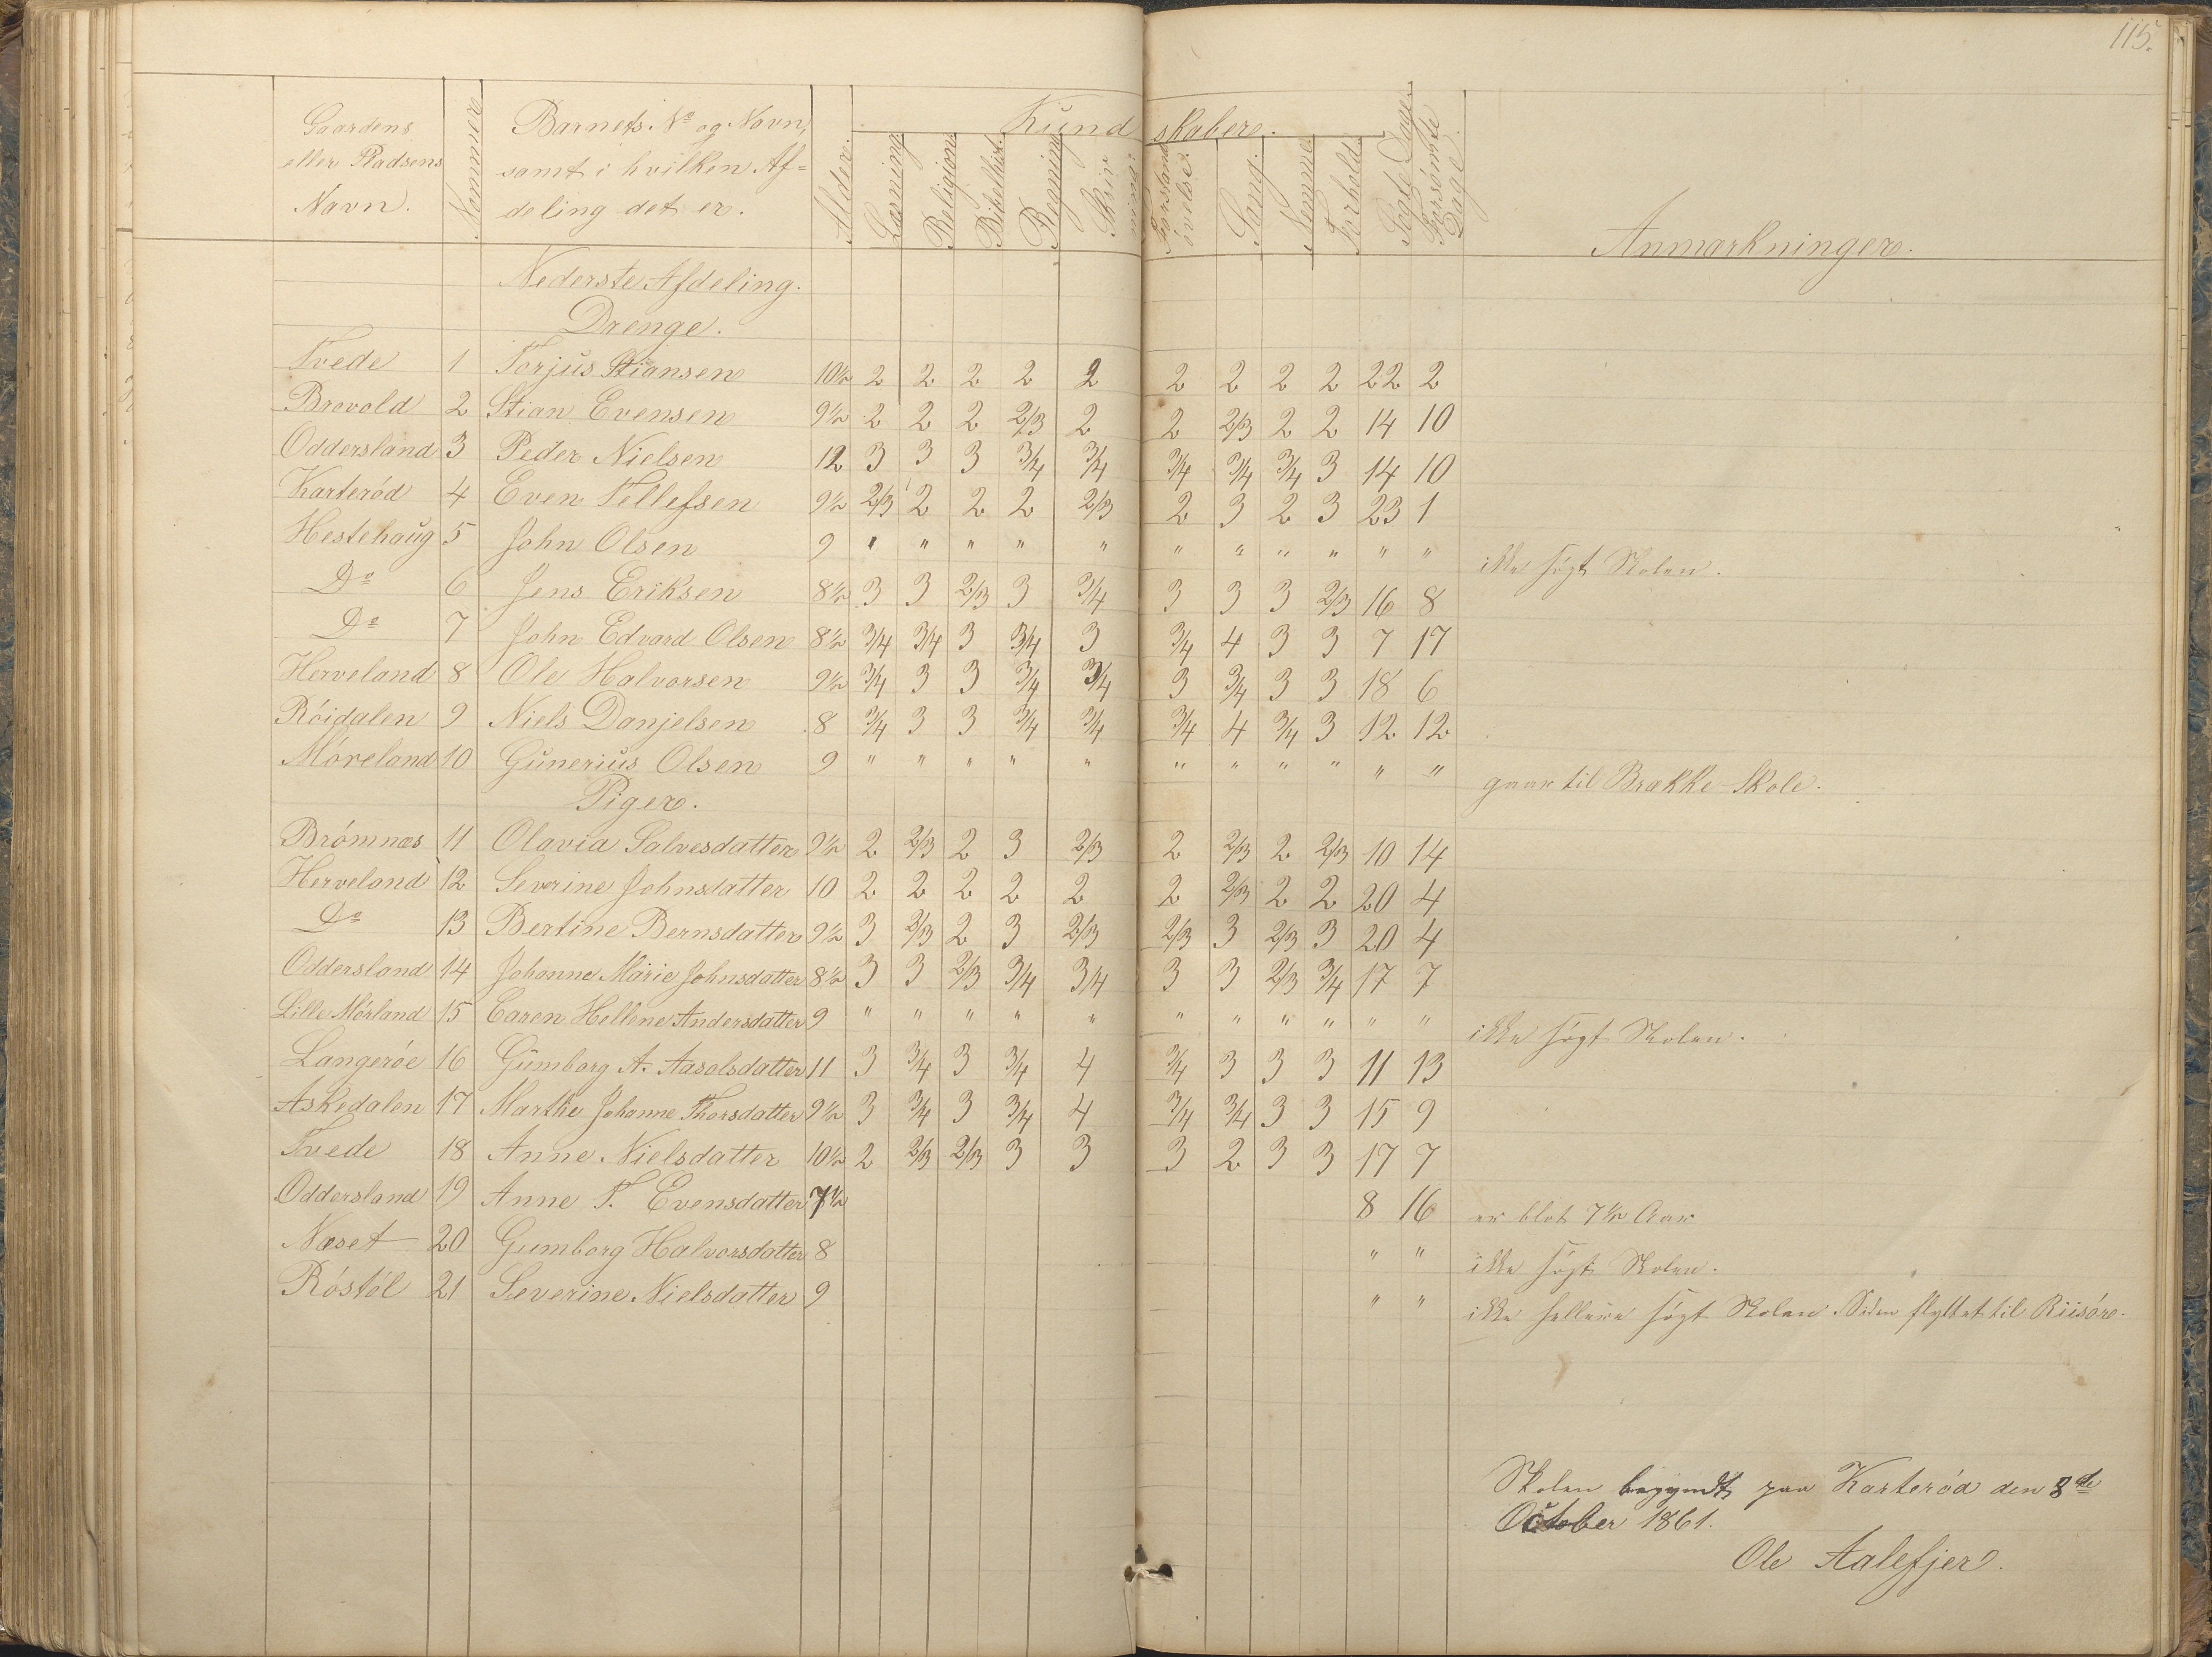 115.
Gaardens eller Pladsens Navn. | Nummer | Barnets No og Navn, samt i hvilken Afdeling det er. | Alder. | Kundskaber. | Læsning. | Religion. | Bibelhist. | Regning. | Skrivning. | Forstandsøvelse. | Sang. | Nemme. | Forhold. | Søgte Dage. | Forsømte Dage. | Anmærkninger.
Nederste Afdeling.
Drenge.
Tvede 1 Torjus Stiansen 10½ 2 2 2 2 2 2 2 2 2 22 2
Brovold 2 Stian Evensen 9½ 2 2 2 2/3 2 2 2/3 2 2 14 10
Oddersland 3 Peder Nielsen 12 3 3 3 3/4 3/4 3/4 3/4 3/4 3 14 10
Karterød 4 Even Tellefsen 9½ 2/3 2 2 2 2/3 2 3 2 3 23 1
Hestehaug 5 John Olsen 9 " " " " " " " " " " " ikke søgt Skolen.
Do 6 Jens Eriksen 8½ 3 3 2/3 3 3/4 3 3 3 2/3 16 8
Do 7 John Edvard Olsen 8½ 3/4 3/4 3 3/4 3 3/4 4 3 3 7 17
Herveland 8 Ole Halvorsen 9½ 3/4 3 3 3/4 3/4 3 3/4 3 3 18 6
Röidalen 9 Niels Danjelsen 8 3/4 3 3 3/4 3/4 3/4 4 3/4 3 12 12
Möreland 10 Gunerius Olsen 9 " " " " " " " " " " " gaar til Brække-Skole.
Piger.
Brömnæs 11 Olavia Salvesdatter 9½ 2 2/3 2 3 2/3 2 2/3 2 2/3 10 14
Herveland 12 Severine Johnsdatter 10 2 2 2 2 2 2 2/3 2 2 20 4
Do 13 Bertine Bernsdatter 9½ 3 2/3 2 3 2/3 2/3 3 2/3 3 20 4
Oddersland 14 Johanne Marie Johnsdatter 8½ 3 3 2/3 3/4 3/4 3 3 2/3 3/4 17 7
Lille Mörland 15 Caren Hellene Andersdatter 9 " " " " " " " " " " " ikke søgt Skolen.
Langeröe 16 Gumborg A. Aasolsdatter 11 3 3/4 3 3/4 4 3/4 3 3 3 11 13
Askedalen 17 Marthe Johanne Thorsdatter 9½ 3 3/4 3 3/4 4 3/4 3/4 3 3 15 9
Tvede 18 Anne Nielsdatter 10½ 2 2/3 2/3 3 3 3 2 3 3 17 7
Oddersland 19 Anne T. Evensdatter 7½ 8 16 er blot 7½ Aar
Næset 20 Gumborg Halvorsdatter 8 " " ikke søgt Skolen.
Röstöl 21 Severine Nielsdatter 9 " " ikke hellere søgt Skolen. Siden flyttet til Riisöre.
Skolen begyndt paa Karteröd den 8de
October 1861.
Ole Aalefjer.